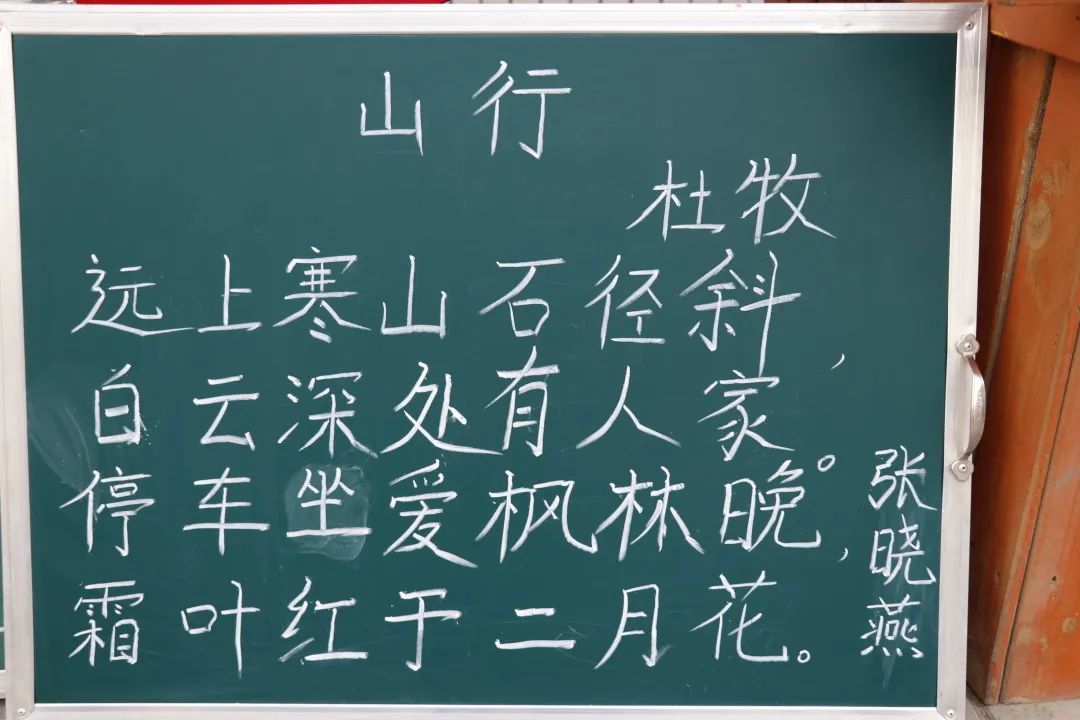 山行
杜牧
远上寒山石径斜，
白云深处有人家。
停车坐爱枫林晚，
霜叶红于二月花。
张晓燕